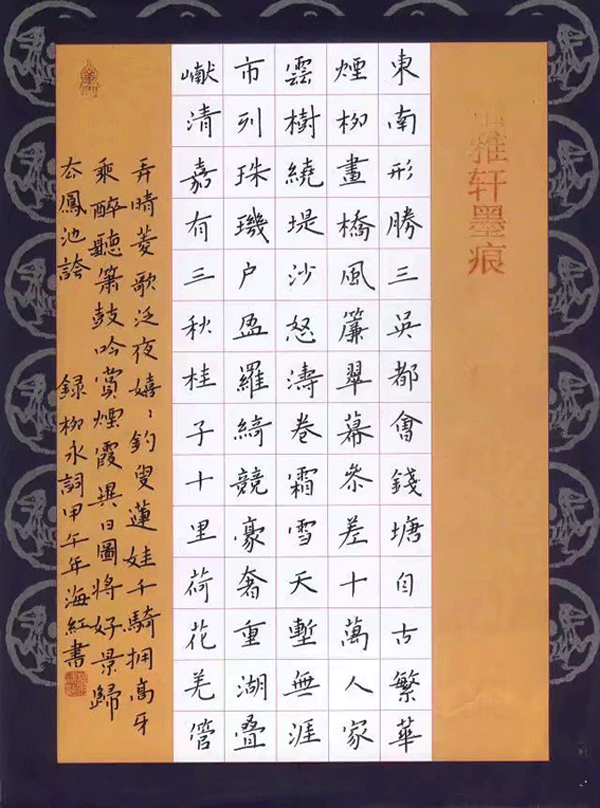 雅轩墨痕
東南形勝三吳都會錢塘自古繁華
煙柳畫橋風簾翠幕参差十萬人家
雲樹繞堤沙怒濤卷霜雪天塹無涯
市列珠璣户盈羅綺競豪奢重湖疊
巘清嘉有三秋桂子十里荷花羌管
弄晴菱歌泛夜嬉〻釣叟蓮娃千騎拥高牙
乘醉聽簫鼓吟賞煙霞異日圖將好景歸
去鳳池誇 録柳永詞甲午年海紅書